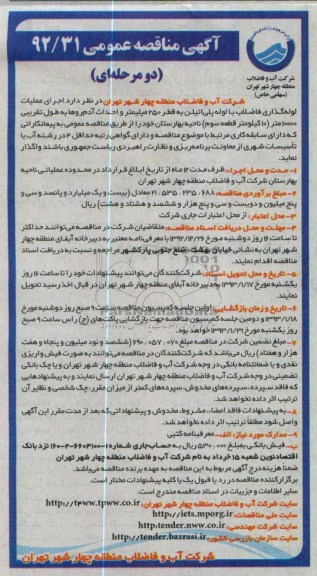 آگهی مناقصه عمومی ۹۲/۳۱
(دو مرحله‌ای)
شرکت آب و فاضلاب
منطقه چهار شهر تهران
(سهامی خاص)
شرکت آب و فاضلاب منطقه چهار شهر تهران در نظر دارد اجرای عملیات
لوله‌گذاری فاضلاب با لوله پلی‌اتیلن به قطر ۲۵۰ میلیمتر و احداث آدم‌روها به طول تقریبی
۱۰۰۰۰ متر (۱۰ کیلومتر قطعه سوم) ناحیه بهارستان خود را از طریق مناقصه عمومی به پیمانکارانی
که دارای سابقه کاری مرتبط با موضوع مناقصه و دارای گواهی رتبه حداقل ۴ در رشته آب یا
تأسیسات شهری از معاونت برنامه‌ریزی و نظارت راهبردی ریاست جمهوری باشند واگذار
نماید.
۱- مدت و محل اجرا: ظرف مدت ۱۲ ماه از تاریخ ابلاغ قرارداد در محدوده عملیاتی ناحیه
بهارستان شرکت آب و فاضلاب منطقه چهار شهر تهران
۲- مبلغ برآوردی مناقصه: ۲۱,۵۳۵,۲۳۵,۶۸۸ معادل (بیست و یک میلیارد و پانصد و سی و
پنج میلیون و دویست و سی و پنج هزار و ششصد و هشتاد و هشت) ریال
۳- محل اعتبار: از محل اعتبارات جاری شرکت
۴- مهلت و محل دریافت اسناد مناقصه: متقاضیان شرکت در مناقصه می‌توانند حداکثر
تا ساعت ۱۶ روز دوشنبه مورخ ۱۳۹۲/۱۲/۲۶ با معرفی‌نامه معتبر به دبیرخانه آبفای منطقه چهار
شهر تهران به نشانی خیابان بهشت، ضلع جنوبی پارکشهر مراجعه و نسبت به دریافت اسناد
مناقصه اقدام نمایند.
۵- تاریخ و محل تحویل اسناد: شرکت‌کنندگان می‌توانند پیشنهادات خود را تا ساعت ۱۶ روز
یکشنبه مورخ ۱۳۹۳/۰۱/۱۷ به دبیرخانه آبفای منطقه چهار شهر تهران در قبال اخذ رسید تحویل
نمایند.
۶- تاریخ و زمان بازگشایی: اولین جلسه کمیسیون مناقصه ساعت ۹ صبح روز دوشنبه مورخ
۱۳۹۳/۱/۱۸ و دومین جلسه کمیسیون مناقصه جهت بازگشایی پاکت‌های (ج) رأس ساعت ۹ صبح
روز یکشنبه مورخ ۱۳۹۳/۱/۳۱ خواهد بود.
۷- مبلغ تضمین شرکت در مناقصه مبلغ ۶۹۰,۰۵۷,۰۷۰ (ششصد و نود میلیون و پنجاه و هفت
هزار و هفتاد) ریال می‌باشد که شرکت‌کنندگان در مناقصه می‌توانند به صورت فیش واریزی
نقدی و یا ضمانتنامه بانکی در وجه شرکت آب و فاضلاب منطقه چهار شهر تهران و یا چک بانکی
تضمینی در وجه شرکت آب و فاضلاب منطقه چهار شهر تهران ارسال نمایند و به پیشنهادهایی
که فاقد سپرده، سپرده‌های مخدوش، سپرده‌های کمتر از میزان مقرر، چک شخصی و نظایر آن
ترتیب اثر داده نخواهد شد.
۸- به پیشنهادات فاقد امضاء، مشروط، مخدوش و پیشنهاداتی که بعد از مدت مقرر این آگهی
واصل شود مطلقاً ترتیب اثر داده نخواهد شد.
۹- مدارک مورد نیاز: الف- معرفینامه کتبی
ب- فیش بانکی بمبلغ ۵۳۰,۰۰۰ ریال به حساب جاری شماره ۱-۶۶۰۴۱۰۰-۲-۱۶۰ نزد بانک
اقتصادنوین شعبه ۱۵ خرداد به نام شرکت آب و فاضلاب منطقه چهار شهر تهران
ضمناً هزینه درج آگهی مربوط به این مناقصه به عهده برنده مناقصه می‌باشد.
برگزارکننده مناقصه در رد یا قبول یک یا کلیه پیشنهادات مختار است.
سایر اطلاعات و جزییات در اسناد مناقصه مندرج است.
سایت شرکت آب و فاضلاب منطقه چهار شهر تهران: http://t4www.tpww.co.ir
سایت ملی مناقصات: http://iets.mporg.ir
سایت شرکت مهندسی: http://tender.nww.co.ir
سایت سازمان بازرسی کشور: http://tender.bazrasi.ir
شرکت آب و فاضلاب منطقه چهار شهر تهران